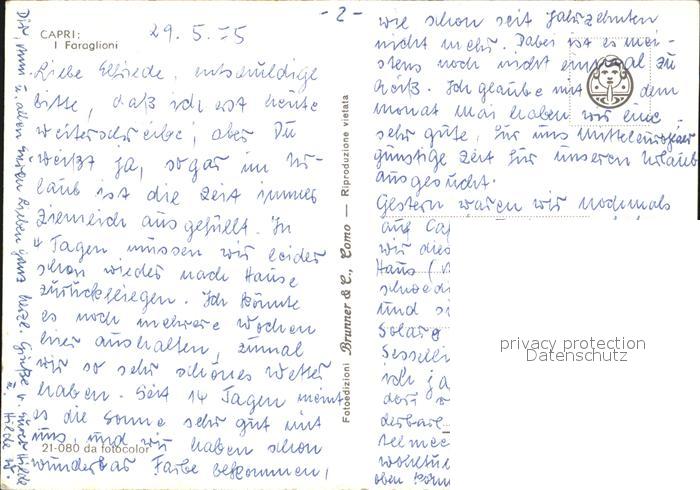 - 2 -
CAPRI:
I Faraglioni
29. 5. 75
Liebe Elfriede, entschuldige
bitte, daß ich erst heute
weiterschreibe, aber Du
weißt ja, sogar im Ur-
laub ist die Zeit immer
ziemlich ausgefüllt. In
4 Tagen müssen wir leider
schon wieder nach Hause
zurückfliegen. Ich könnte
es noch mehrere Wochen
hier aushalten, zumal
wir so sehr schönes Wetter
haben. Seit 14 Tagen meint
es die Sonne sehr gut mit
uns, und wir haben schon
wunderbar Farbe bekommen,
21-080 da fotocolor
Fotoedizioni Brunner & C., Como — Riproduzione vietata
wie schon seit Jahrzehnten
nicht mehr. Dabei ist es mei-
stens noch nicht einmal zu
heiß. Ich glaube mit dem
Monat Mai haben wir eine
sehr gute, für uns Mitteleuropäer
günstige Zeit für unseren Urlaub
ausgesucht.
Gestern waren wir nochmals
auf Ca
wir dies
Haus (
schwedi
und si
Solar
Sesselli
ich ja
dort
derbar
telmee
wohltu
oben könn
privacy protection
Datenschutz
Dir, und allen Lieben ganz herzl. Grüße v. Eurer Hilde
Hilde